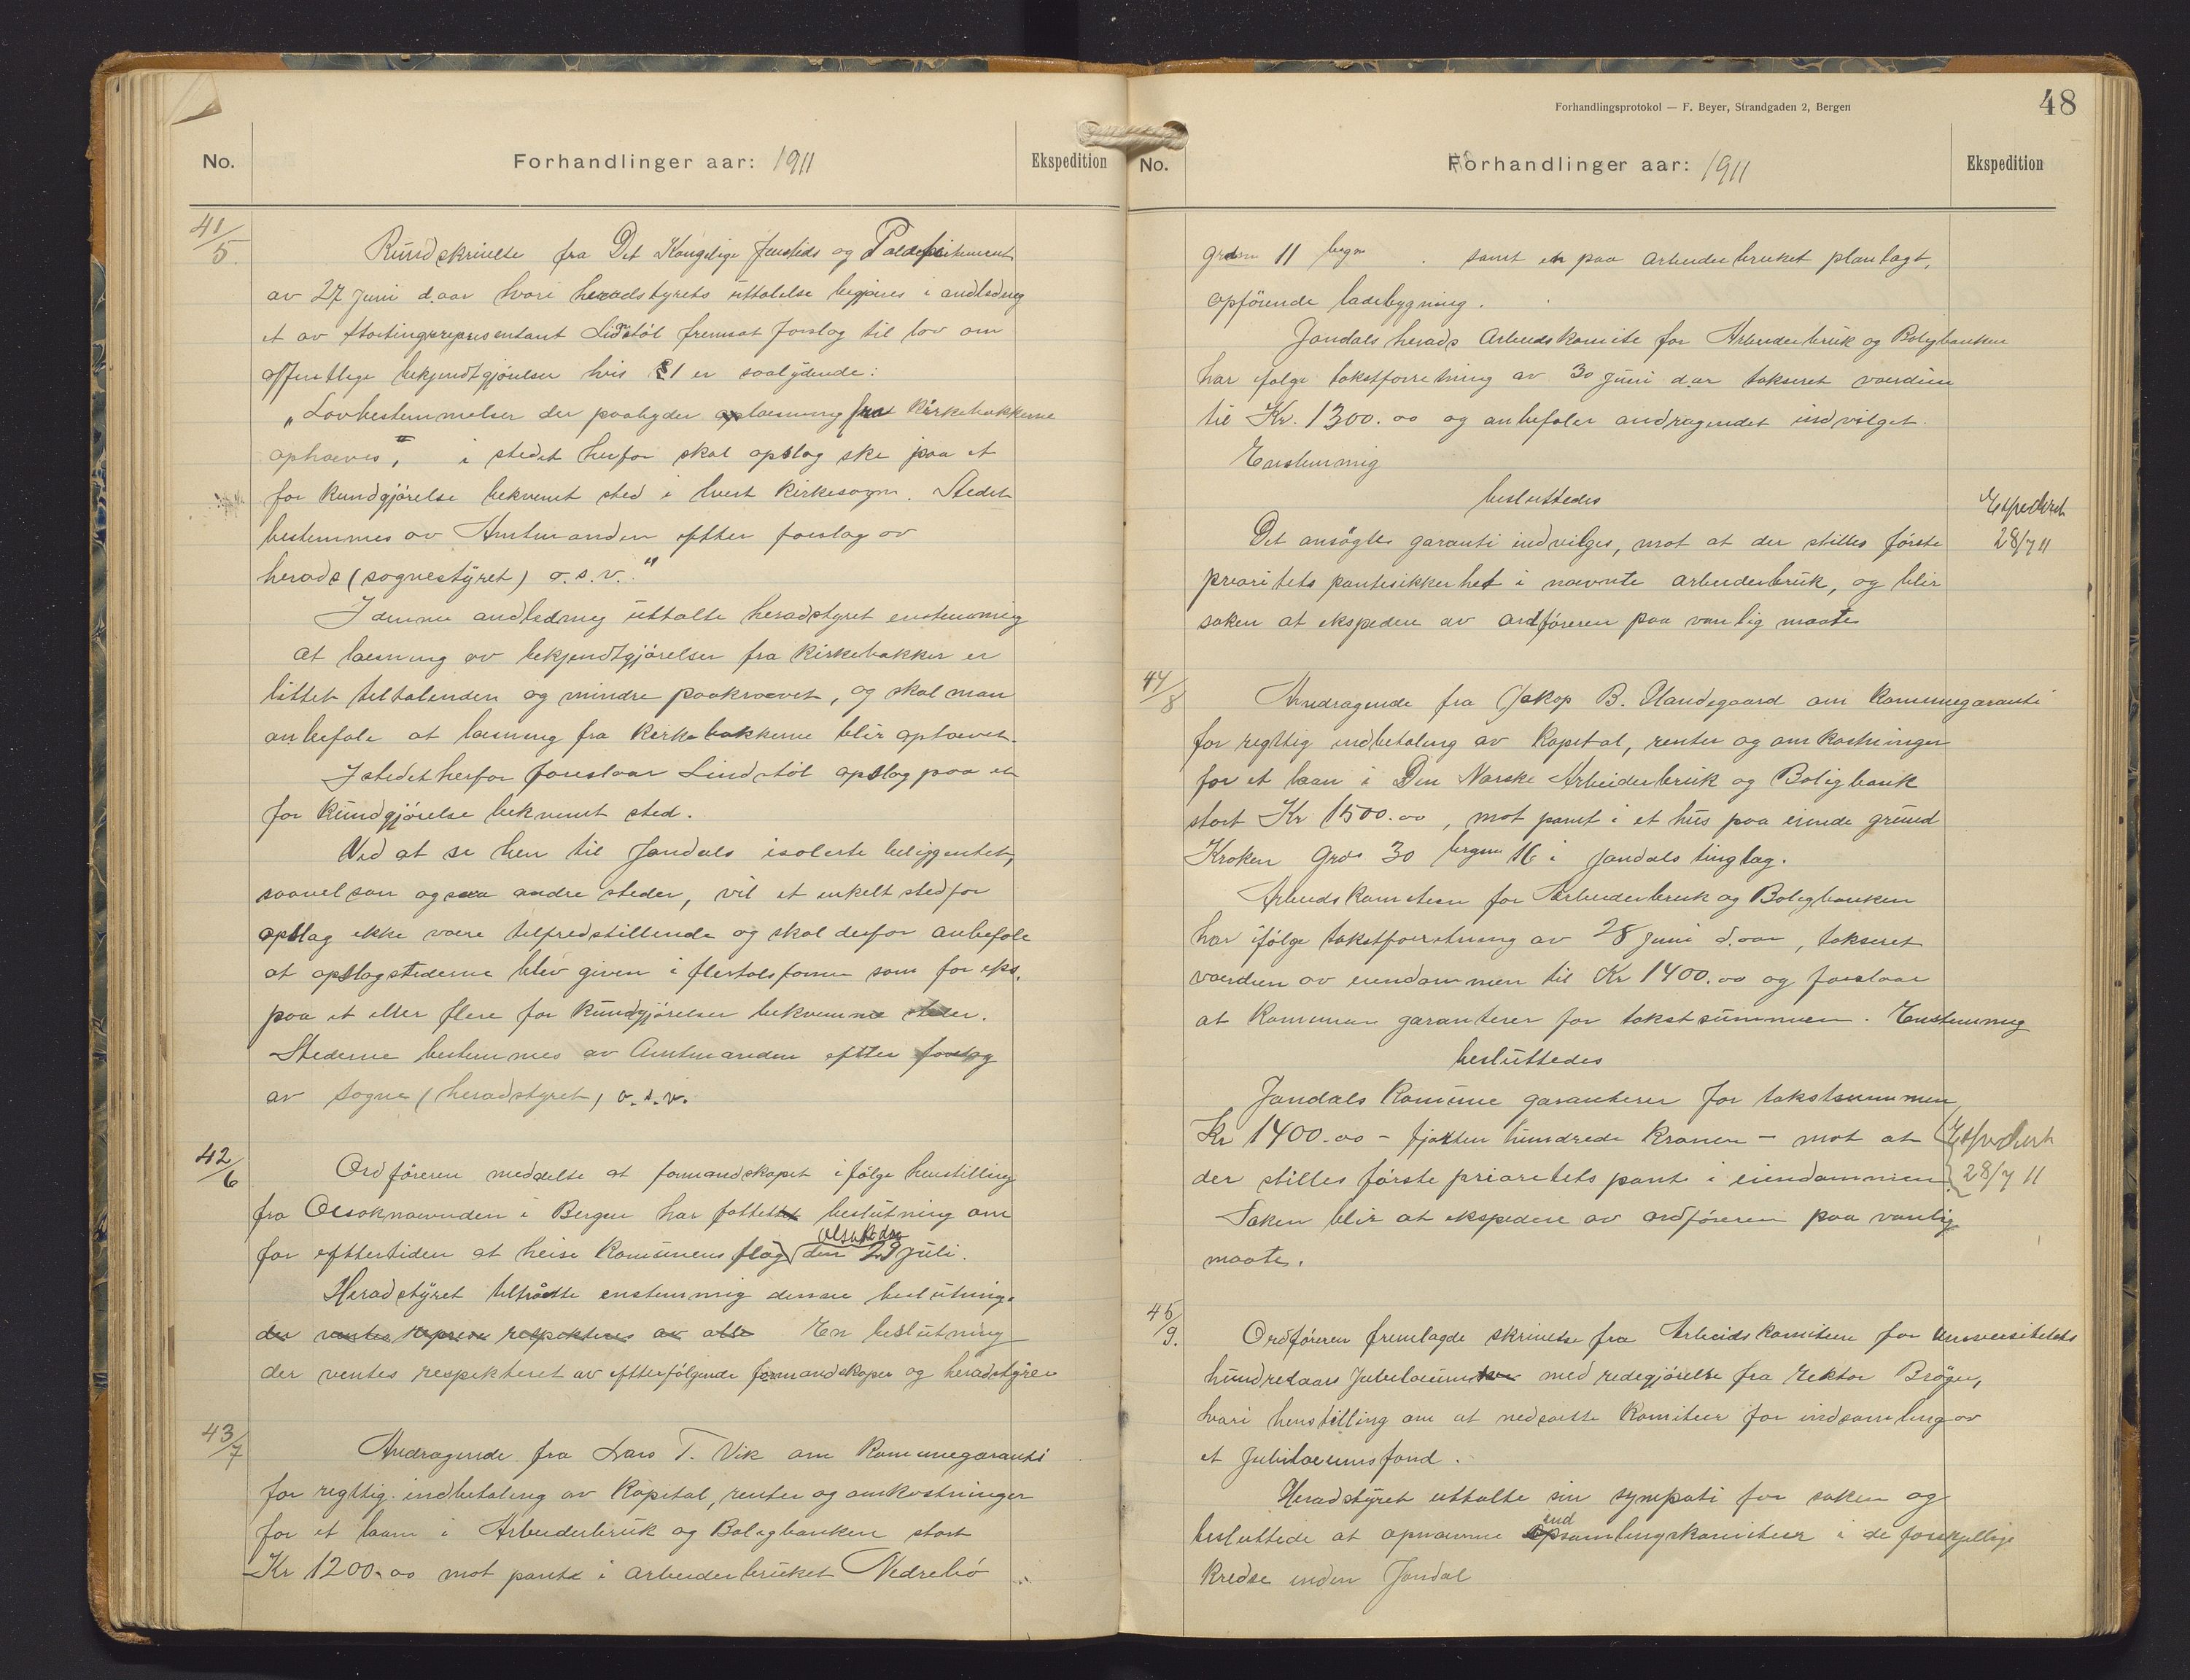 No.
Forhandlinger aar: 1911
Ekspedition
41/5
Rundskrivelse fra Det Kongelige Justids og Politidepartement
av 27 juni d.aar hvori heradstyrets uttalelse begjæres i andledning
et av Stortingsrepresentant Lidstöl fremsat forslag til lov om
offentlige bekjendtgjörelser hvis § 1 er saalydende:
"Lovbestemmelser der paabyder oplæsning fra Kirkebakkerne
ophæves, i stedet herfor skal opslag ske paa et
for kundgjörelse bekvemt sted i hvert Kirkesogn. Stedet
bestemmes av Amtmanden efter forslag av
herads (sognestyret) o.s.v."
I denne andledning uttalte heradstyret enstemmig
at læsning av bekjendtgjörelser fra Kirkebakker er
littet tiltalenden og mindre paakrævet, og skal man
anbefale at læsning fra Kirkebakkerne blir ophævet.
I stedet herfor foreslaar Lindstöl opslag paa et
for kundgjörelse bekvemt sted.
Ved at se hen til Jondals isolerte beliggenhet,
saavel som ogsaa andre steder, vil et enkelt sted for
opslag ikke være tilfredstillende og skal derfor anbefale
at opslagstederne blev given i flertalsform som for eks.
paa et eller flere for kundgjörelser bekvemme steder.
Stederne bestemmes av Amtmanden efter forslag
av sogne (heradstyret) o.s.v.
42/6
Ordföreren meddelte at formandskapet i fölge henstilling
fra Olsoknævnden i Bergen har fattet beslutning om
olsokdag
for eftertiden at heise Komunens flag den 29 juli.
Heradstyret tiltrådte enstemmig denne beslutning.
der ventes respekteres av alle En beslutning
der ventes respekteret av efterfölgende formandskaper og heradstyrer
43/7
Andragende fra Lars T. Vik om Komunegaranti
for regttig indbetaling av Kapital, renter og omkostninger
for et laan i Arbeiderbruk og Boligbanken stort
Kr 1200.00 mot pant i arbeiderbruket Nedrebö
Forhandlingsprotokol — F. Beyer, Strandgaden 2, Bergen
48
No.
Forhandlinger aar: 1911
Ekspedition
grdsno 11 brgno samt en paa arbeiderbruket planlagt,
opförende ladebygning.
Jondals herads Arbeidskomite for Arbeiderbruk og Boligbanken
har ifölge takstforretning av 30 juni d.ar takseret værdien
til Kr. 1300.00 og anbefaler andragendet indvilget.
Enstemmig
besluttedes
Det ansögte garanti indvilges, mot at der stilles förste
prioritets pantesikkerhet i nævnte arbeiderbruk, og blir
saken at ekspedere av ordföreren paa vanlig maate
Expedert
28/7 11
44/8
Andragende fra Jakop B. Handegaard om Komunegaranti
for regttig indbetaling av Kapital, renter og omkostninger
for et laan i Den Norske Arbeiderbruk og Boligbank
stort Kr 1500.00, mot pant i et hus paa eiende grund
Kroken grds 30 brgsn 16 i Jondals tinglag.
Arbeidskomiteen for Arbeiderbruk og Boligbanken
har ifölge takstforretning av 28 juni d.aar, takseret
værdien av eiendommen til Kr 1400.00 og foreslaar
at Komunen garanterer for takstsummen. Enstemmig
besluttedes
Jondals Komune garanterer for takstsummen
Kr 1400.00 - fjorten hundrede Kroner - mot at
der stilles förste prioritets pant i eiendommen
Saken blir at ekspedere av ordföreren paa vanlig
maate.
Expedert
28/7 11
45/9.
Ordföreren fremlagde skrivelse fra Arbeidskomiteen for Universitetets
hundredaars Jubelæum med redegjörelse fra rektor Brögger,
hvori henstilling om at nedsætte Komiteer for indsamling av
et Jubilæumsfond.
Heradstyret uttalte sin sympati for saken og
besluttede at opnævne indsamlingskomiteer i de forskjellige
Kredse inden Jondal